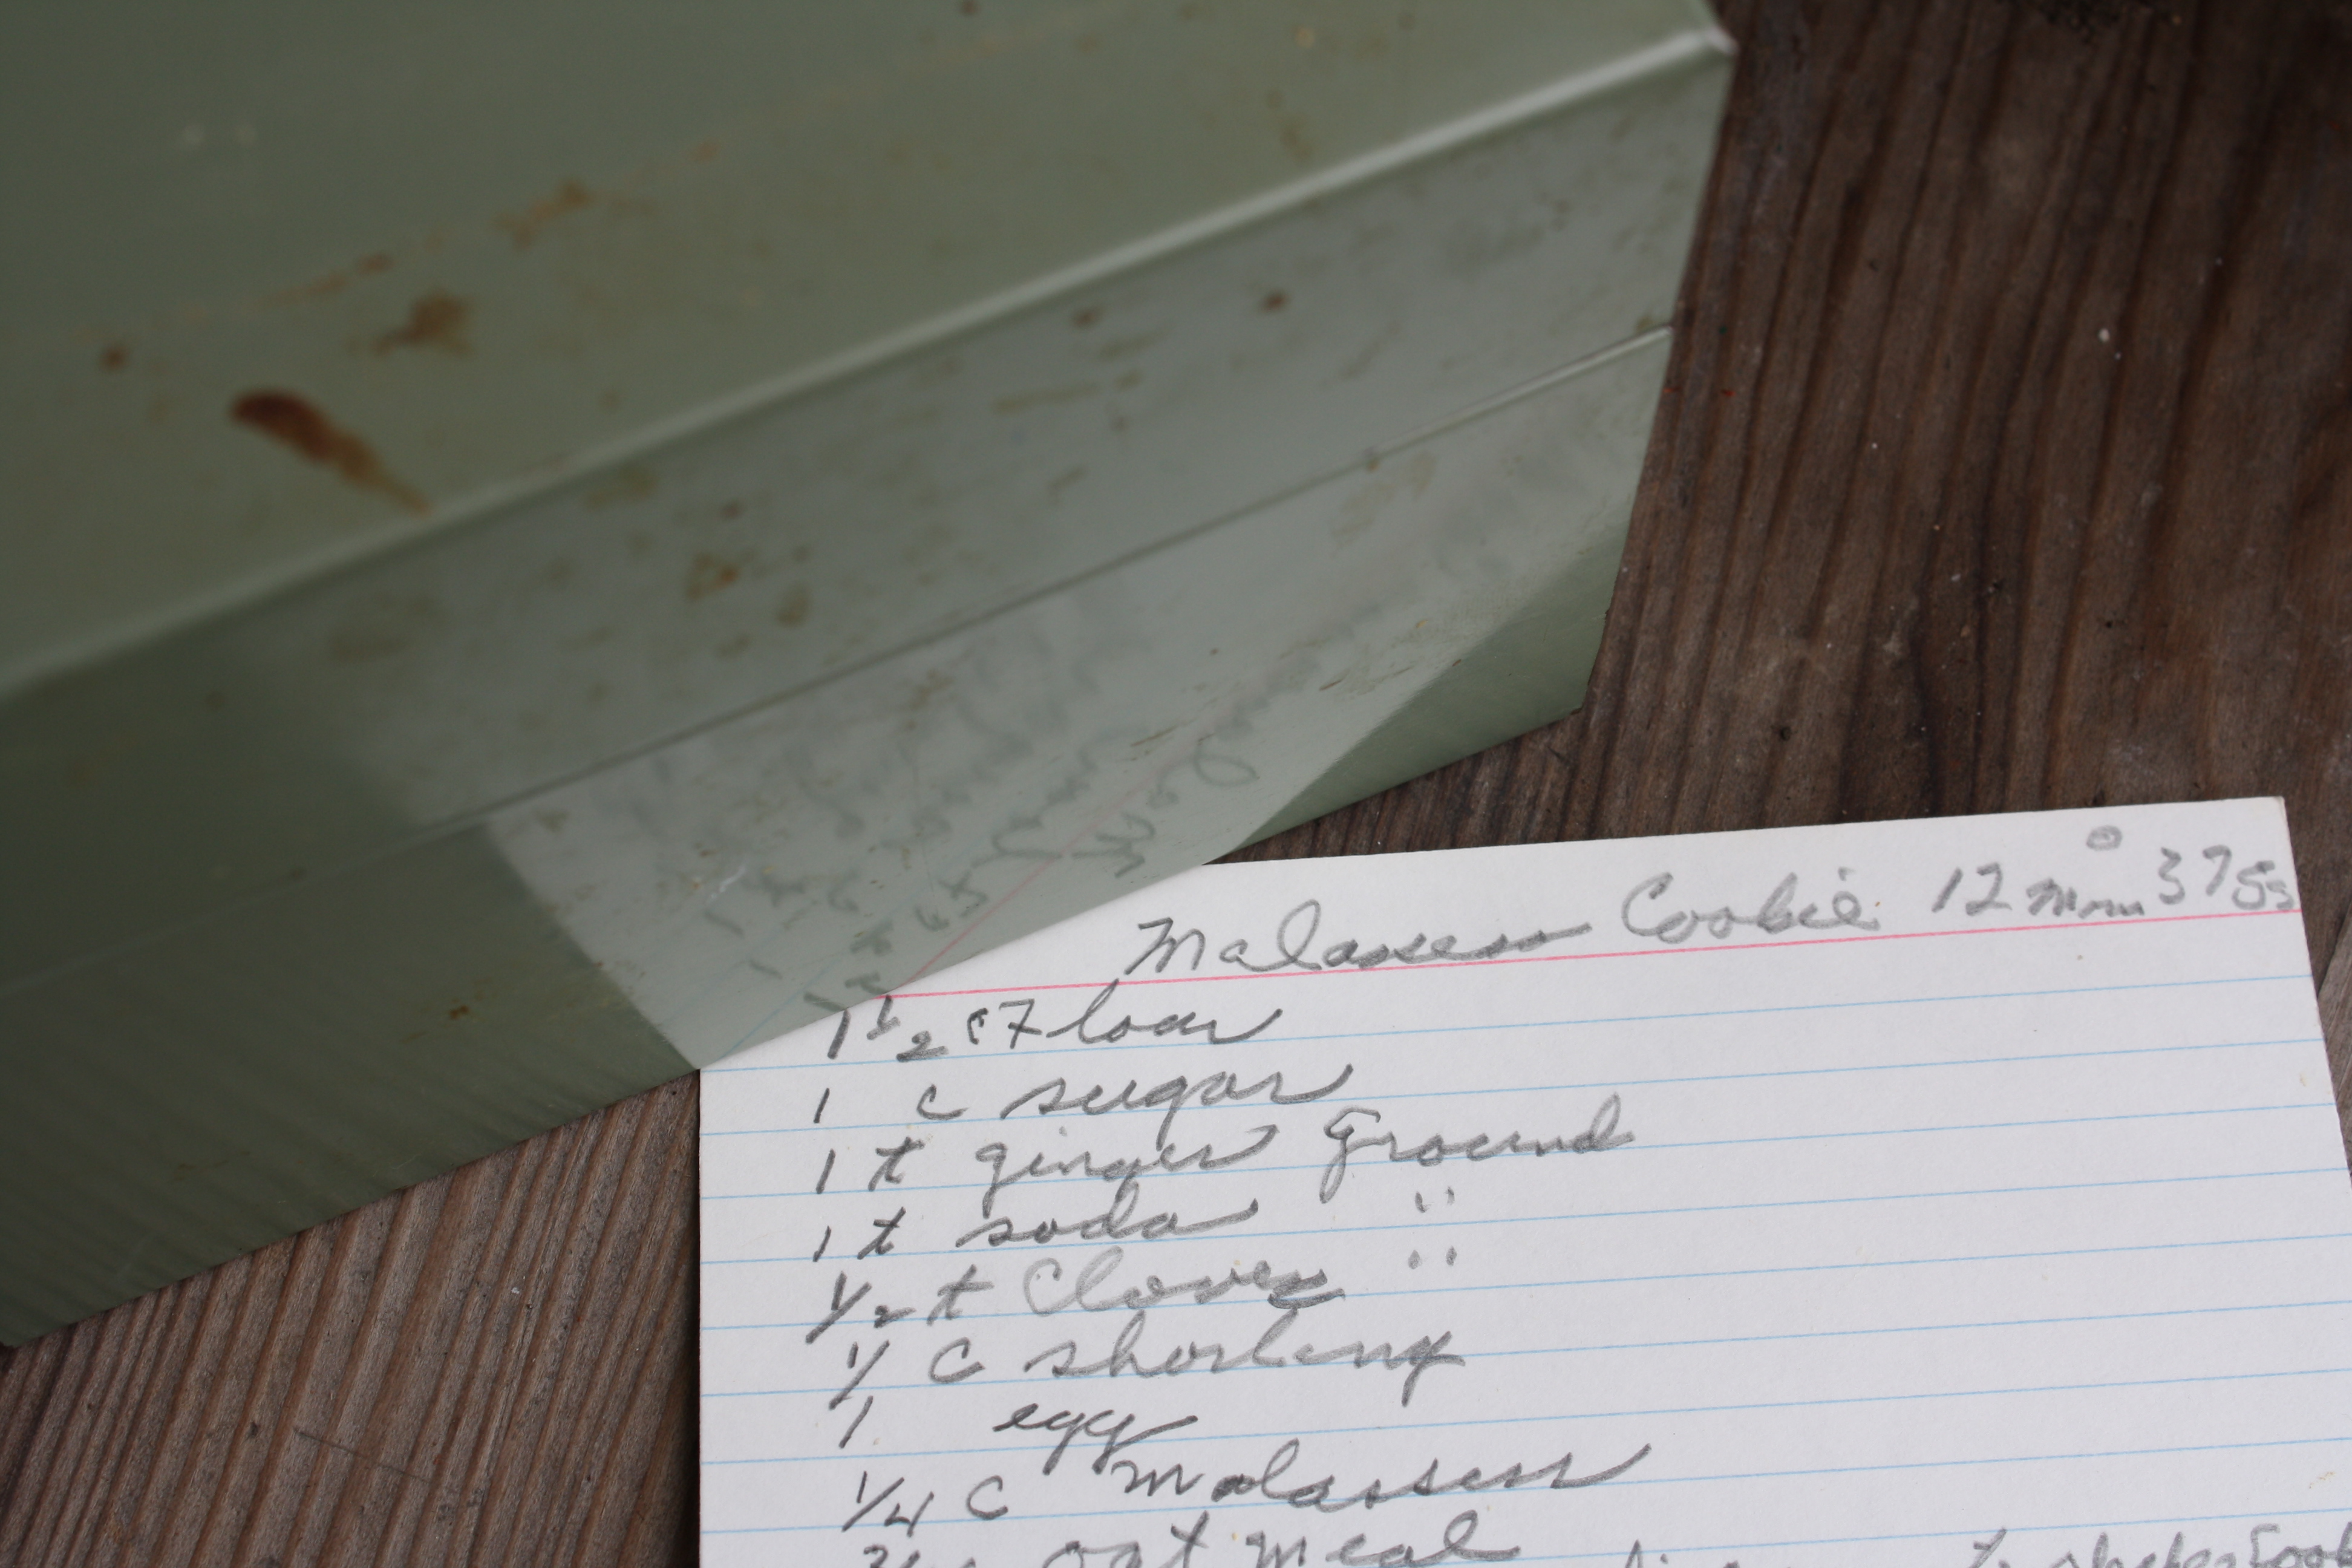 Malasses Cookie 12 mm 375
1 1/2 c Flour
1 c sugar
1 t ginger Ground
1 t soda "
1/2 t Cloves "
1/ C shortening
1 egg
1/4 C Malasses
oat meal